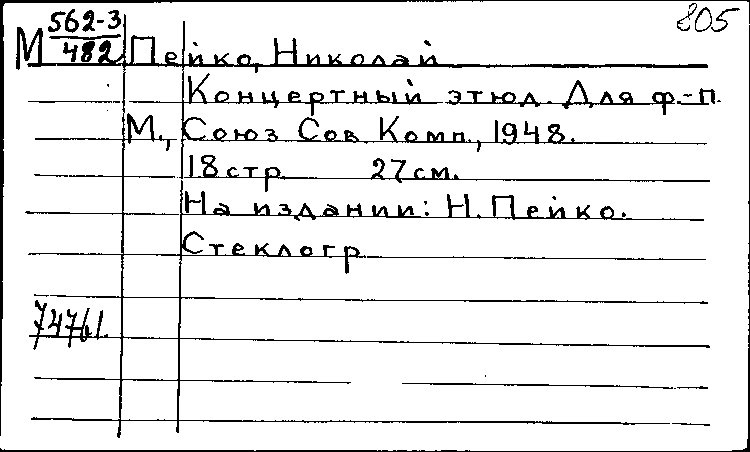 805
М 562-3/482 Пейко, Николай
Концертный этюд. Для ф.-п.
М., Союз Сов. Комп., 1948.
18 стр. 27 см.
На издании: Н. Пейко.
Стеклогр
74761.